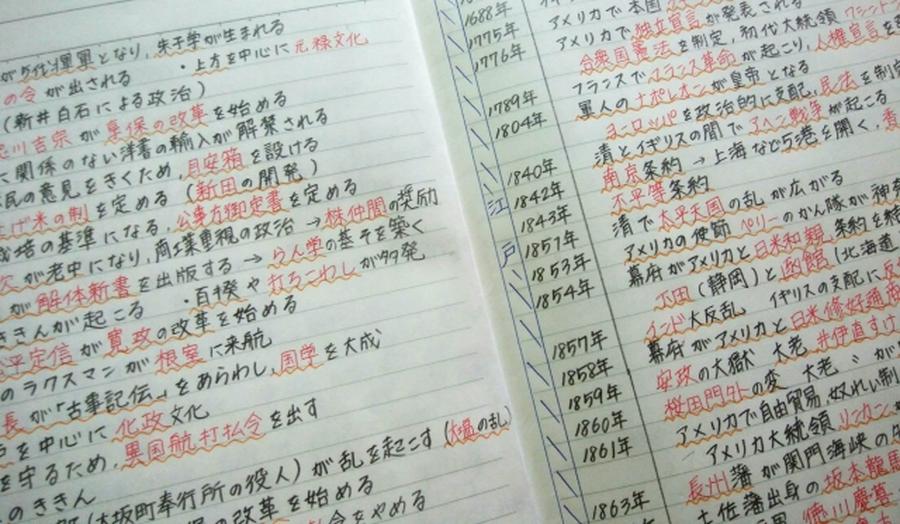 が5代将軍となり、朱子学が生まれる
の令が出される ・上方を中心に元禄文化
(新井白石による政治)
川吉宗が享保の改革を始める
に関係のない洋書の輸入が解禁される
民の意見をきくため、目安箱を設ける
げ米の制を定める (新田の開発)
栽培の基準になる、公事方御定書を定める
が老中になり、商工業重視の政治 → 株仲間の奨励
が解体新書を出版する → らん学の基そを築く
ききんが起こる ・百揆や打ちこわしが多発
平定信が寛政の改革を始める
のラクスマンが根室に来航
長が「古事記伝」をあらわし、国学を大成
を中心に化政文化
を守るため、異国船打払令を出す
のききん
(大坂町奉行所の役人)が乱を起こす (大塩の乱)
の改革を始める
令をやめる
江戸
1688年
1775年 アメリカで本国
1776年 アメリカで独立宣言が発表される
合衆国憲法を制定、初代大統領ワシントン
1789年 フランスでフランス革命が起こり、人権宣言を
1804年 軍人のナポレオンが皇帝となる
ヨーロッパを政治的に支配、民法を制定
1840年 清とイギリスの間でアヘン戦争が起こる
1842年 南京条約 → 上海など5港を開く、
1843年 不平等条約
1851年 清で太平天国の乱が広がる
1853年 アメリカの使節ペリーのかん隊が神奈
1854年 幕府がアメリカと日米和親条約を結
下田(静岡)と函館(北海道
1857年 インド大反乱 イギリスの支配に反
1858年 幕府がアメリカと日米修好通商
1859年 安政の大獄 大老 井伊直すけ
1860年 桜田門外の変 大老〃が
1861年 アメリカで自由貿易、奴れい制
アメリカ大統領リンカン
1863年 長州藩が関門海峡の
土佐藩出身の坂本龍馬
徳川慶喜